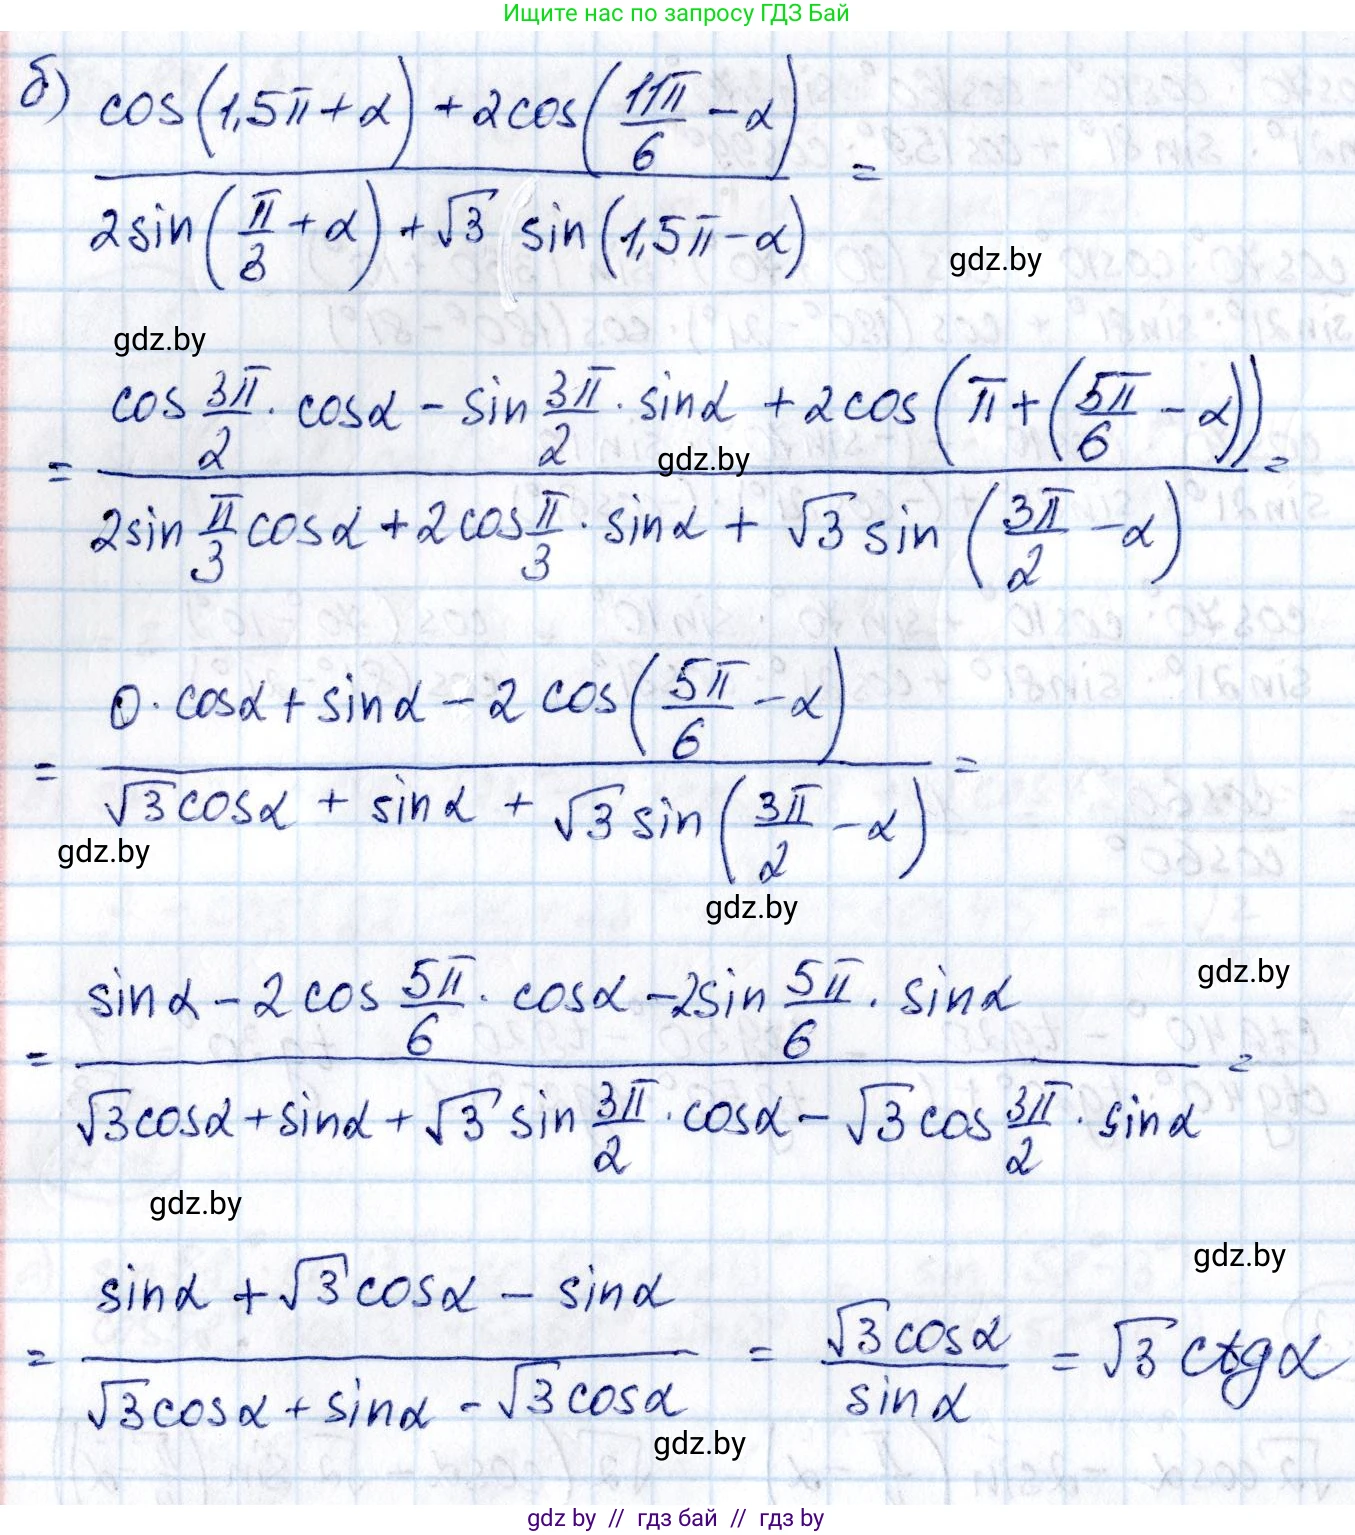 Ищите нас по запросу ГДЗ Бай
б) (cos(1,5π+α) + 2cos(11π/6 − α)) / (2sin(π/3 + α) + √3 sin(1,5π − α)) =
gdz.by
gdz.by
= (cos 3π/2 · cosα − sin 3π/2 · sinα + 2cos(π + (5π/6 − α))) / (2sin π/3 cosα + 2cos π/3 · sinα + √3 sin(3π/2 − α)) =
gdz.by
= (0 · cosα + sinα − 2 cos(5π/6 − α)) / (√3 cosα + sinα + √3 sin(3π/2 − α)) =
gdz.by
gdz.by
gdz.by
= (sinα − 2 cos 5π/6 · cosα − 2sin 5π/6 · sinα) / (√3 cosα + sinα + √3 sin 3π/2 · cosα − √3 cos 3π/2 · sinα) =
gdz.by
gdz.by
= (sinα + √3 cosα − sinα) / (√3 cosα + sinα − √3 cosα) = (√3 cosα) / (sinα) = √3 ctgα
gdz.by
gdz by // гдз бай // гдз by